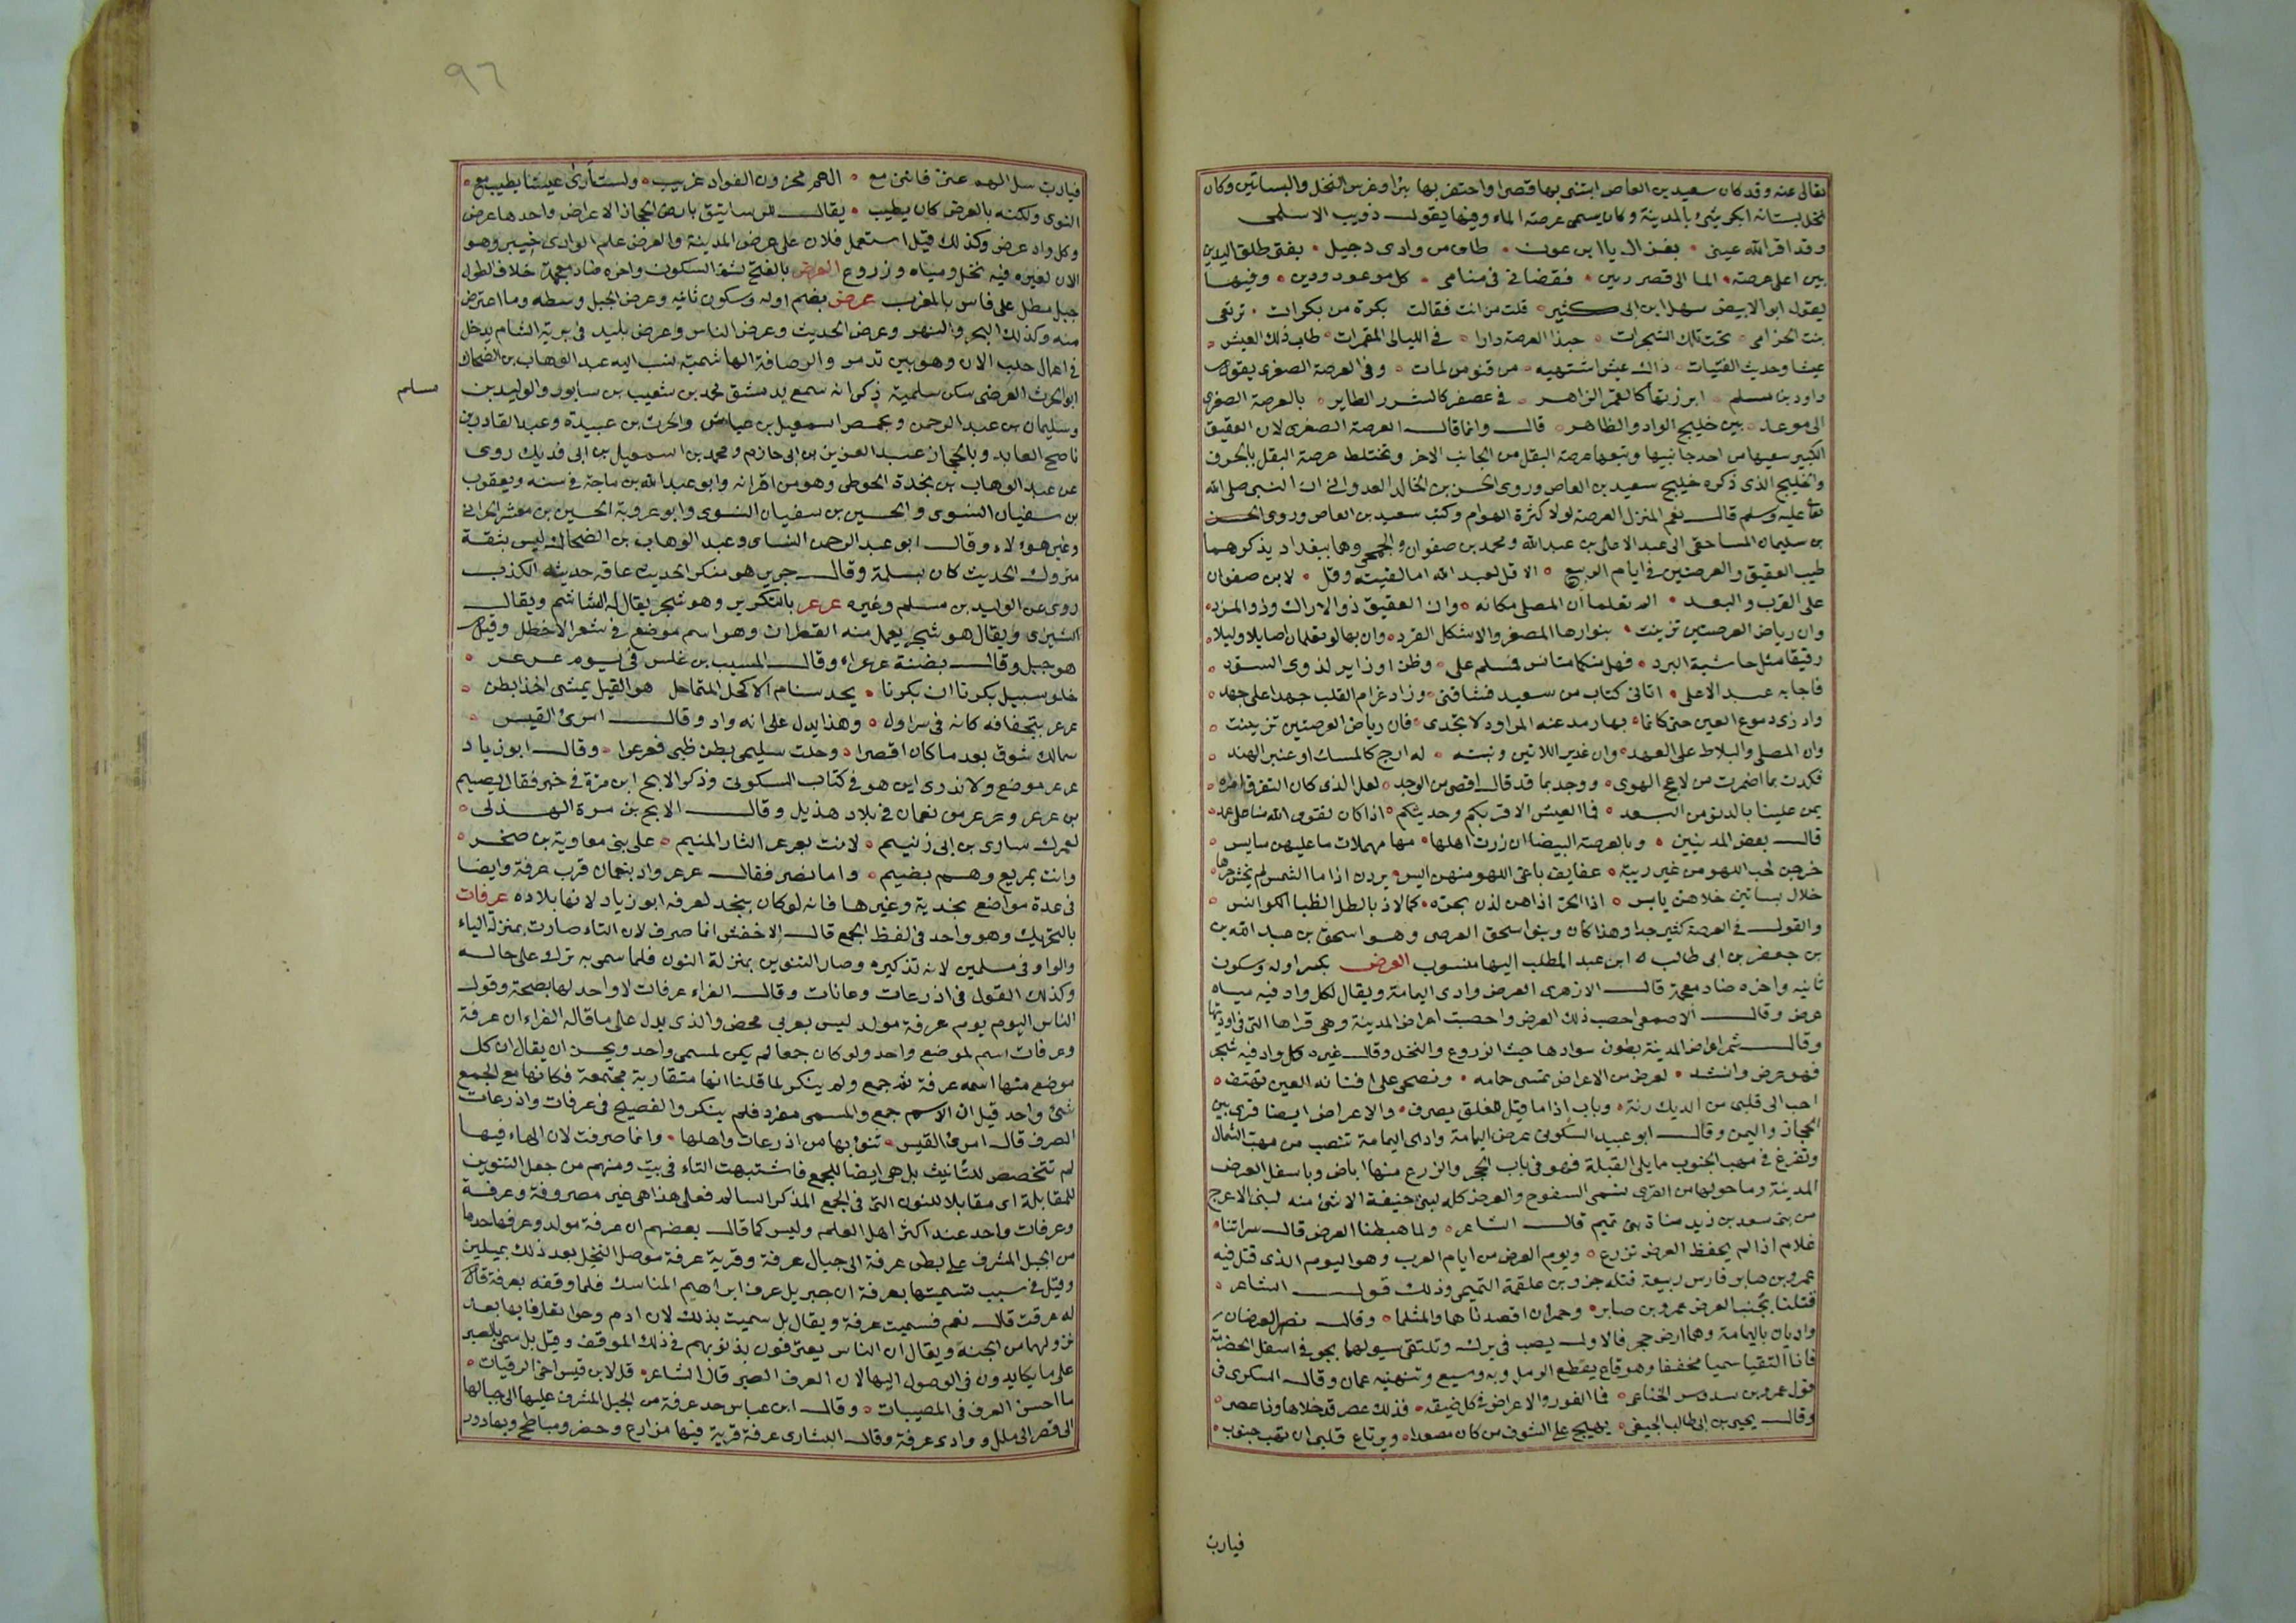 تعالى عنه وقد كان سعيد بن العاص ابتنى بها قصرا واحتفر بها بئرا وغرس النخل والبساتين وكان
نخل بستانه ابكر شئ بالمدينة وكان يسمى عرصة الماء وفيها يقول ذويب الاسلمى
وقد اقر الله عينى بغزال يا ابن عون طاف من وادى دجيل بفتى طلق اليدين
بين اعلى عرصة الما الى قصر زبين فقضانى فى منامى كل موعود ودين وفيها
يقول ابو الابيض سهل ابن ابى كثير قلت من انت فقالت بكرة من بكرات ترتعى
نبت الخزامى تحت تلك الشجرات حبذا العرصة دارا فى الليالى المقمرات طاب ذلك العيش
عيشا وحديث الفتيات ذاك عيش اشتهيه من فنون لمات وفى العرصة الصغرى يقول
داود بن سلم ابرزتها كالقمر الزاهر فى عصفر كالشرر الطاير بالعرصة الصغرى
الى موعد بين خليج الواد والظاهر قال وانما قال العرصة الصغرى لان العقيق
الكبير سعيها من احد جانبيها وتتبعها عرصة البقل من الجانب الاخر وتختلط عرصة البقل بالجرف
والخليج الذى ذكره خليج سعيد بن العاص وروى الحسن بن الخالد العدوانى ان النبى صلى الله
تعا عليه وسلم قال نعم المنزل العرصة لولا كثرة الهوام وكتب سعيد بن العاص وروى الحسن
بن سليمان المساحقى الى عبد الاعلى بن عبدالله ومحمد بن صفوان والجمحى وهما ببغداد يذكرهما
طيب العقيق والعرصتين فى ايام الربيع الا قل لعبد الله اما لقيته وقل لابن صفوان
على القرب والبعد الم تعلما أن المصلى مكانه وان العقيق ذو الاراك وذو المرد
وان رياض العرصتين تزينت بنوارها المصفر والاشكل الفرد وان بها لو تعلمان اصايلا وليلا
رقيقا مثل حاشية البرد فهل منكما مستانس فمسلم على وطن او زاير لذوى السود
فاجابه عبد الاعلى اتانى كتاب من سعيد فشاقنى وزاد غرام القلب جهدا على جهد
واذرى دموع العين حتى كانما بها رمد عنه المراود لا تجدى فان رياض العرصتين تزينت
وان المصلى والبلاط على العهد وان غدير اللابتين ونبته له ارج كالمسك او عنبر الهند
فكدت بما اضمرت من لاعج الهوى ووجد بما قد قال اقضى من الوجد لعل الذى كان التفرق امره
يمن علينا بالدنو من البعد فما العيش الا قربكم وحديثكم اذا كان تقوى الله منا على عمد
قال بعض المدنيين وبالعرصة البيضا ان زرت اهلها مها مهملات ما عليهن سايس
خرجن لحب اللهو من غير ريبة عفايف باغى اللهو منهن ايس يردن اذا ما الشمس لم يخش حرها
خلال بساتين خلاهن يابس اذا الحر اذاهن لذن بحرة كما لاذ بالظل الظبا الكوانس
والقول فى العرصة كثير جدا وهذا كان وبنو اسحق العرصى وهو اسحق بن عبد الله بن
بن جعفر بن ابى طالب ابن عبد المطلب اليها منسوب العرض بكسر اوله وسكون
ثانيه واخره ضاد معجمة قال الازهرى العرض وادى اليمامة ويقال لكل واد فيه مياه
عرض وقال الاصمعى اخصب ذلك العرض واخصبت اعراض المدينة وهى قراها التى فى اوديتها
وقال شمر اعراض المدينة بطون سوادها حيث الزروع والنخل وقال غيره كل واد فيه شجر
فهو عرض وانشد لعرض من الاعراض تمسى حمامه وتضحى على افنانه العين تهتف
احب الى قلبى من الديك رنة وباب إذا ما قيل للغلق يصرف والاعراض ايضا قرى بين
الحجاز واليمن وقال ابو عبيد السكونى عرض اليمامة وادى اليمامة تنصب من مهب الشمال
وتفرغ فى مهب الجنوب مما يلى القبلة فهو فى باب الحجر والزرع منها اباض وباسفل العرض
المدينة وما حولها من القرى تسمى السفوح والعرض كله لبنى حنيفة الا شئ منه لبنى الاعرج
من بنى سعد بن زيد مناة بن تميم قال الشاعر ولما هبطنا العرض قال سراتنا
غلام اذا لم يحفظ العرض نزرع ويوم العرض من ايام العرب وهو اليوم الذى قتل فيه
عمرو بن صابر فارس ربيعة قتله جزء بن علقمة التميمى وذلك قول الشاعر
قتلنا بجنب العرض عمرو بن صابر وحمران اقصدناهما والمثلما وقال نصر العرضان
واديان باليمامة وهما ارض حجر فالاول يصب فى برك وتلتقى سيولهما بجو فى اسفل الخضرمة
فاذا التقيا سميا مخففا وهو قاع يقطع الرمل وبه وسيع وتنهيه عمان وقال السكرى فى
قول عمرو بن سدوس الخناعى فما الغور والاعراض فى كل ضيقة فذلك عصر قد خلاها وذا عصر
وقال يحيى بن ابى طالب الحنفى يهيج على الشوق من كان مصعدا ويرتاع قلبى ان تهب جنوب
فيارب
٩٦
فيارب سل الهم عنى فاننى مع الهم محزون الفواد غريب ولست ارى عيشا يطيب مع
النوى ولكنه بالعرض كان يطيب يقال للرساتيق بارض الحجاز الاعراض واحدها عرض
وكل واد عرض وكذلك قيل استعمل فلان على عرض المدينة والعرض علم الوادى خيبر وهو
الان لعنزه فيه نخل ومياه وزروع العرض بالفتح ثم السكون واخره ضاد معجمة خلاف الطول
جبل مطل على فاس بالمغرب عرض بضم اوله وسكون ثانيه وعرض الجبل وسطه وما اعترض
منه وكذلك البحر والنهر وعرض الحديث وعرض الناس وعرض بليد فى برية الشام يدخل
فى اعمال حلب الان وهو بين تدمر والرصافة الهاشمية نسب اليه عبد الوهاب بن الضحاك
ابو الحرث العرضى سكن سلمية ذكر انه سمع بدمشق محمد بن شعيب بن سابور والوليد بن
مسلم
وسليمان بن عبد الرحمن وبحمص اسمعيل بن عياش والحرث بن عبيدة وعبد القادر بن
ناصح العابد وبالحجاز عبد العزيز بن ابى حازم ومحمد بن اسمعيل بن ابى فديك روى
عن عبد الوهاب بن نجدة الحوطى وهو من اقرانه وابو عبد الله بن ماجة فى سننه ويعقوب
بن سفيان النسوى والحسين بن سفيان النسوى وابو عروبة الحسين بن معشر الحرانى
وغير هؤلاء وقال ابو عبد الرحمن النساى وعبد الوهاب بن الضحاك ليس بثقة
متروك الحديث كان بسلمة وقال جرير هو منكر الحديث عامة حديثه الكذب
روى عن الوليد بن مسلم وغيره عرعر بالتكرير وهو شجر يقال له الساسم ويقال
الشيزى ويقال هو شجر يعمل منه القطران وهو اسم موضع فى شعر الاخطل وقيل
هو جبل وقال بضنة عرعرا وقال المسيب بن علس فى يوم عرعر
خلو سبيل بكرنا ان بكرنا يحد سنام الاكحل المتماحل هو القيل يمشى اخذا بطن
عرعر بتجفافه كانه فى سراول وهذا يدل على انه واد وقال امرئ القيس
سمالك شوق بعد ما كان اقصرا وحلت سليمى بطن ظبى فعرعرا وقال ابو زياد
عرعر موضع ولا ندرى اين هو فى كتاب السكونى وذكر الابح ابن مرة فى خبر فقال بضيم
بن عرعر وعرعر من نعمان فى بلاد هذيل وقال الابح بن مرة الهذلى
لعمرك سارى بن ابى زنيم لانت بعرعر الثار المنيم على بنى معاوية بن صخر
وانت بمربع وهم بضيم واما نصر فقال عرعر واد بنعمان قرب عرفة وايضا
فى عدة مواضع نجدية وغيرها فانه لو كان بنجد لعرفه ابو زياد لانها بلاده عرفات
بالتحريك وهو واحد فى لفظ الجمع قال الاخفش انما صرف لان التاء صارت بمنزلة الياء
والواو فى مسلمين لانه تذكيره وصار التنوين بمنزلة النون فلما سمى به ترك على حاله
وكذلك القول فى اذرعات وعانات وقال الفراء عرفات لا واحد لها بصحة وقول
الناس اليوم يوم عرفة مولد ليس بعربى محض والذى يدل على ما قاله الفراء ان عرفة
وعرفات اسم لموضع واحد ولو كان جمعا لم يكن لمسمى واحد ويحسن ان يقال ان كل
موضع منها اسمه عرفة ثم جمع ولم ينكر لما قلنا انها متقاربة مجتمعة فكانها مع الجمع
شئ واحد قيل ان الاسم جمع والمسمى مفرد فلم ينكر والفصيح فى عرفات واذرعات
الصرف قال امرئ القيس تنورتها من اذرعات واهلها وانما صرفت لان الهاء فيها
لم تتخصص للتأنيث بل هى ايضا للجمع فاشتبهت التاء فى بيت ومنهم من جعل التنوين
للمقابلة اى مقابلا للنون التى فى الجمع المذكر السالم فعلى هذا هى غير مصروفة وعرفة
وعرفات واحد عند اكثر اهل العلم وليس كما قال بعضهم ان عرفة مولد وعرفة حدها
من الجبل المشرف على بطن عرفة الى جبال عرفة وقرية عرفة موصل النخل بعد ذلك بميلين
وقيل فى سبب تسميتها بعرفة ان جبريل عرف ابراهيم المناسك فلما وقفه بعرفة قال
له عرفت قال نعم فسميت عرفة ويقال بل سميت بذلك لان ادم وحوا تعارفا بها بعد
نزولهما من الجنة ويقال ان الناس يعترفون بذنوبهم فى ذلك الموقف وقيل بل سمى بالصبر
على ما يكابدون فى الوصول اليها لان العرف الصبر قال الشاعر قل لابن قيس اخى الرقيات
ما احسن العرف فى المصيبات وقال ابن عباس حد عرفة من الجبل المشرف عليها الى جبالها
الى قصر الى ملل ووادى عرفة وقال البشارى عرفة قرية فيها مزارع وخضر ومباطخ وبها دور